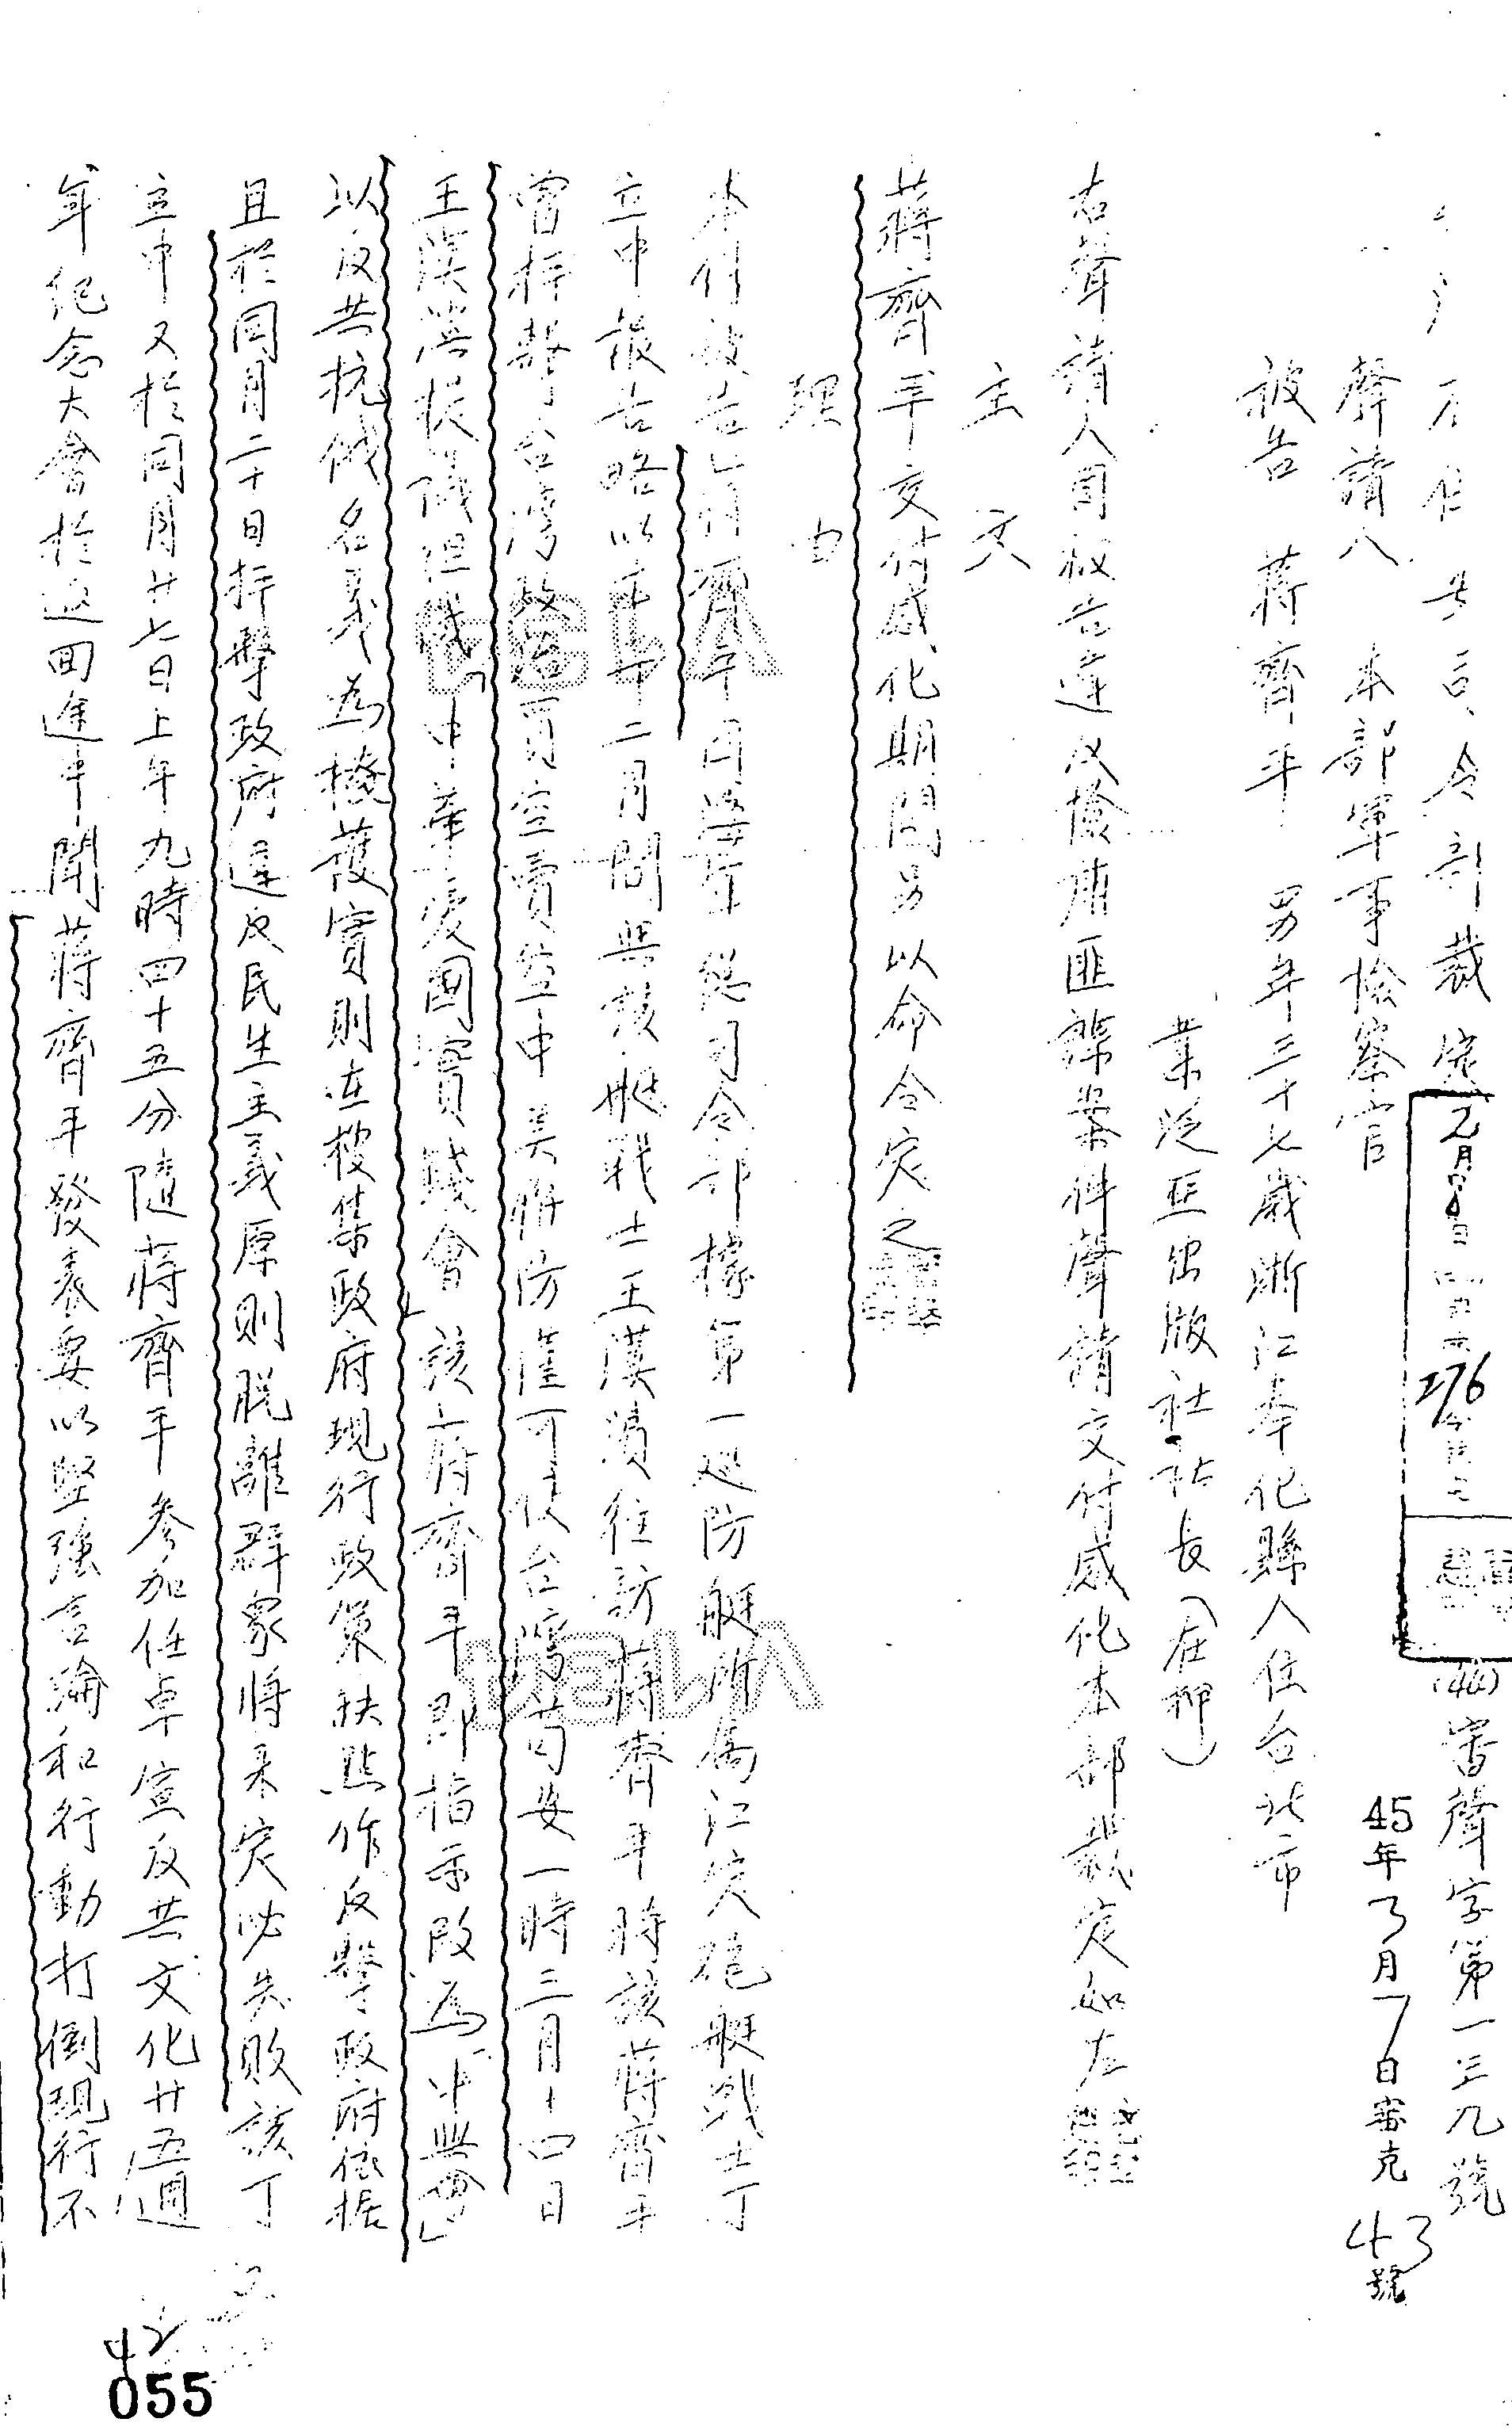 保安司令部裁定
(44)審聲字第一三九號
276
45年3月7日審克43號
聲請人 本部軍事檢察官
被告 蔣齊平 男年三十七歲浙江奉化縣人住台北市
業泛亞出版社社長(在押)
右聲請人因被告違反檢肅匪諜案件聲請交付感化本部裁定如左
主文
蔣齊平交付感化期間另以命令定之
理由
本件被告蔣齊平因海軍總司令部據第一巡防艇所屬江定砲艇戰士丁
立中報告略以卅二月間與該艇戰士王漢濱往訪蔣齊平時該蔣齊平
曾抨擊台灣政治買空賣空中美協防僅可使台灣苟安一時三月十四日
王漢濱提議組織「中華愛國實踐會」該蔣齊平即指示改為「中興會」
以反共抗俄名義為掩護實則在搜集政府現行政策缺點作反擊政府依据
且於同月二十日抨擊政府違反民生主義原則脫離群眾將來定必失敗該丁
立中又於同月廿七日上午九時四十五分隨蔣齊平參加任卓宣反共文化廿五週
年紀念大會於返回途中聞蔣齊平發表要以堅強言論和行動打倒現行不
42
055